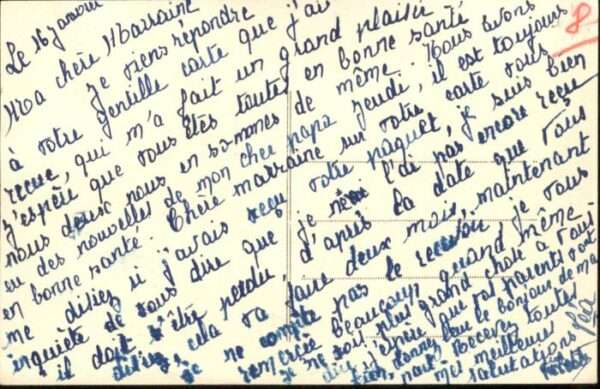 Le 16 janvier
Ma chère Marraine
Je viens répondre
à votre gentille carte que j'ai
reçue, qui m'a fait un grand plaisir
J'espère que vous êtes toutes en bonne santé
nous deux nous en sommes de même. Nous avons
eu des nouvelles de mon cher papa jeudi, il est toujours
en bonne santé. Chère marraine sur votre carte vous
me disiez si j'avais reçu votre paquet, je suis bien
inquiète de vous dire que je ne l'ai pas encore reçu
il doit s'être perdu, d'après la date que vous
disiez, cela va faire deux mois, maintenant
je ne compte pas le recevoir je vous
remercie beaucoup quand même.
je ne sait plus grand chose à vous
dire, j'espère que vos parents vont
bien, donnez leur le bonjour de ma
part. Recevez toutes
mes meilleures
salutations Léa
8